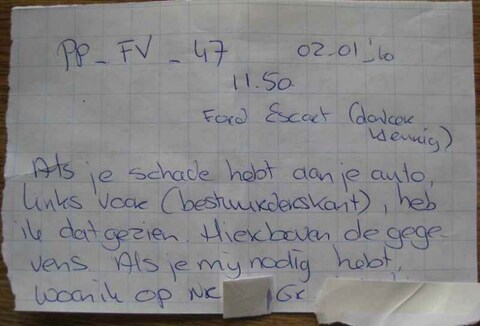 PP_FV_47 02.01.'10
11.50
Ford Escort (donker
kleurig)
Als je schade hebt aan je auto,
links voor (bestuurderskant), heb
ik dat gezien. Hierboven de gege-
vens. Als je mij nodig hebt,
woon ik op NK GK